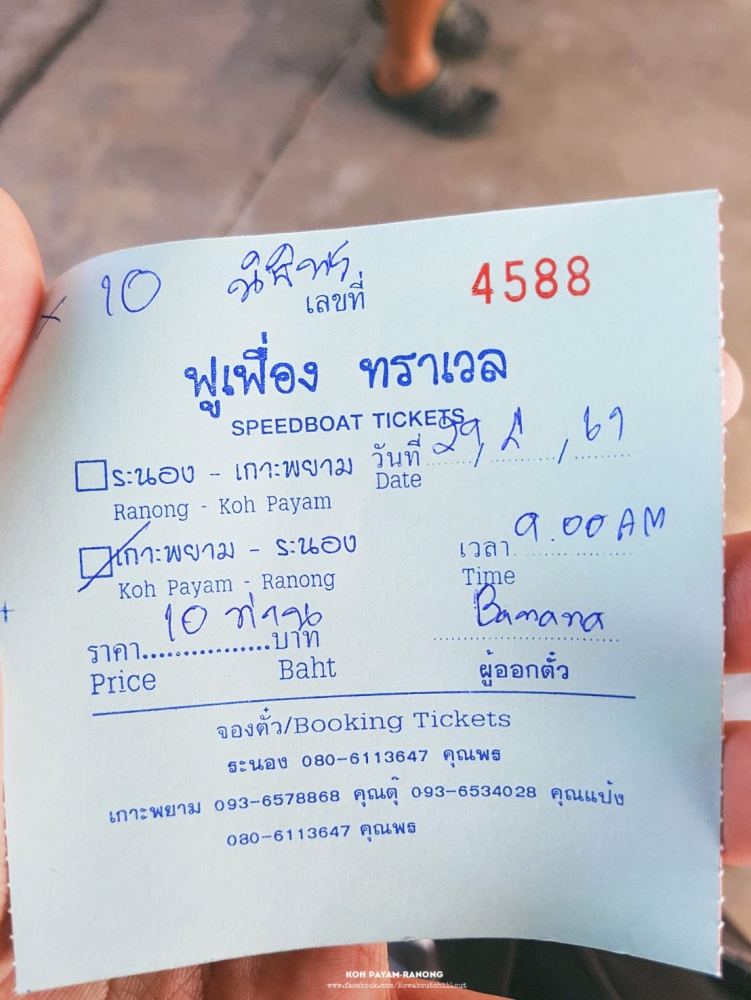 10
เลขที่ 4588
ฟูเฟื่อง ทราเวล
SPEEDBOAT TICKETS
ระนอง - เกาะพยาม วันที่ 29,
Ranong - Koh Payam Date
เกาะพยาม - ระนอง เวลา 9.00 AM
Koh Payam - Ranong Time
10 ท่าน Banana
ราคา................บาท
Price Baht ผู้ออกตั๋ว
จองตั๋ว/Booking Tickets
ระนอง 080-6113647 คุณพร
เกาะพยาม 093-6578868 คุณดุ๊ 093-6534028 คุณแป้ง
080-6113647 คุณพร
KOH PAYAM-RANONG
www.facebook.com/Howaboutchillout